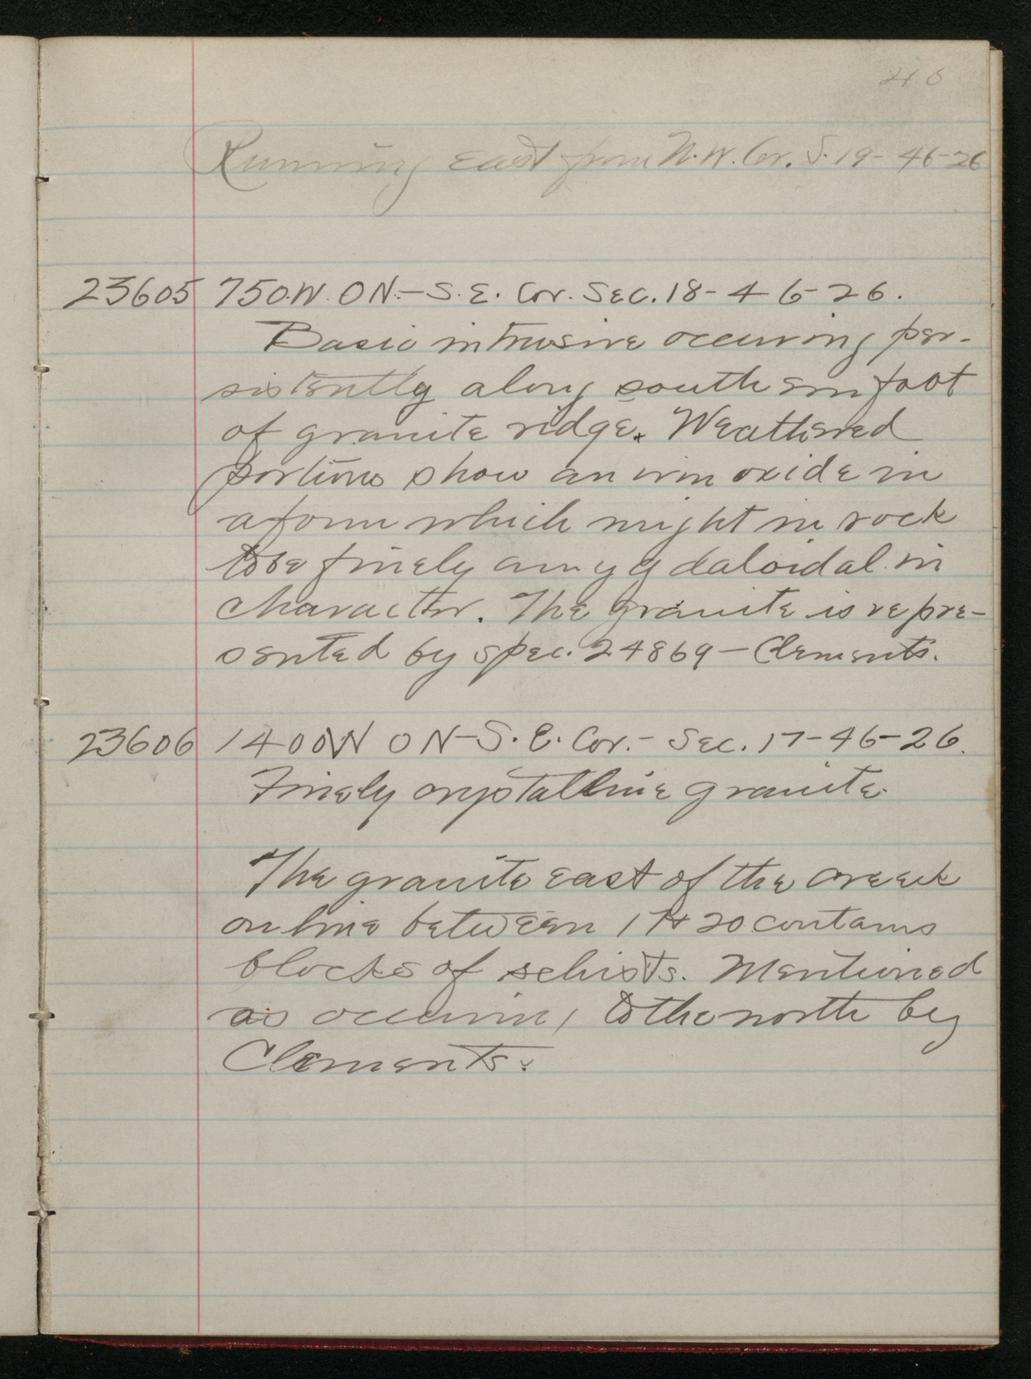 46
Running east from N.W. Cor. S. 19-46-26
23605 750W. ON.-S.E. Cor. Sec. 18-46-26.
Basic intrusive occuring per-
sistently along southern foot
of granite ridge. Weathered
portions show an iron oxide in
a form which might in rock
to be finely amygdaloidal in
character. The granite is repre-
sented by spec. 24869-Clements.
23606 1400W ON-S.E. Cor.- Sec. 17-46-26.
Finely crystalline granite.
The granite east of the creek
on line between 17 & 20 contains
blocks of schists. Mentioned
as occuring to the north by
Clements.